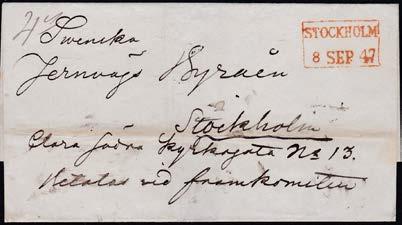 STOCKHOLM
8 SEP 47
Swenska
Jernvägs Byråen
Stockholm
Clara Södra Kyrkogata No 13.
Betalas vid framkomsten